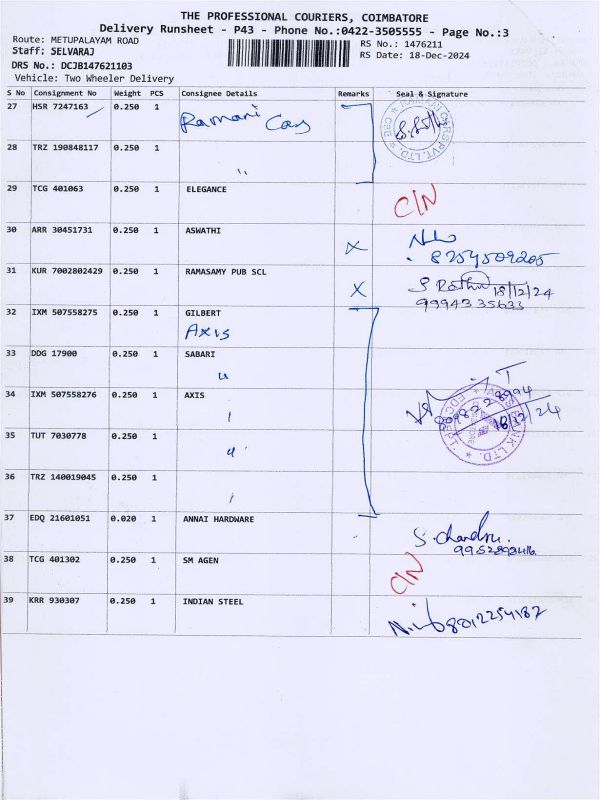 THE PROFESSIONAL COURIERS, COIMBATORE
Delivery Runsheet - P43 - Phone No.:0422-3505555 - Page No.:3
Route: METUPALAYAM ROAD
RS No.: 1476211
Staff: SELVARAJ
RS Date: 18-Dec-2024
DRS No.: DCJB147621103
Vehicle: Two Wheeler Delivery
S No Consignment No Weight PCS Consignee Details Remarks Seal & Signature
27 HSR 7247163 0.250 1 Ramani Cars
28 TRZ 190848117 0.250 1 "
29 TCG 401063 0.250 1 ELEGANCE C/N
30 ARR 30451731 0.250 1 ASWATHI X
31 KUR 7002802429 0.250 1 RAMASAMY PUB SCL X 18/12/24
99943 35633
32 IXM 507558275 0.250 1 GILBERT
Axis
33 DDG 17900 0.250 1 SABARI
"
34 IXM 507558276 0.250 1 AXIS
35 TUT 7030778 0.250 1 "
18/12/24
36 TRZ 140019045 0.250 1
37 EDQ 21601051 0.020 1 ANNAI HARDWARE S. Chandru.
38 TCG 401302 0.250 1 SM AGEN C/N
39 KRR 930307 0.250 1 INDIAN STEEL 8012254187